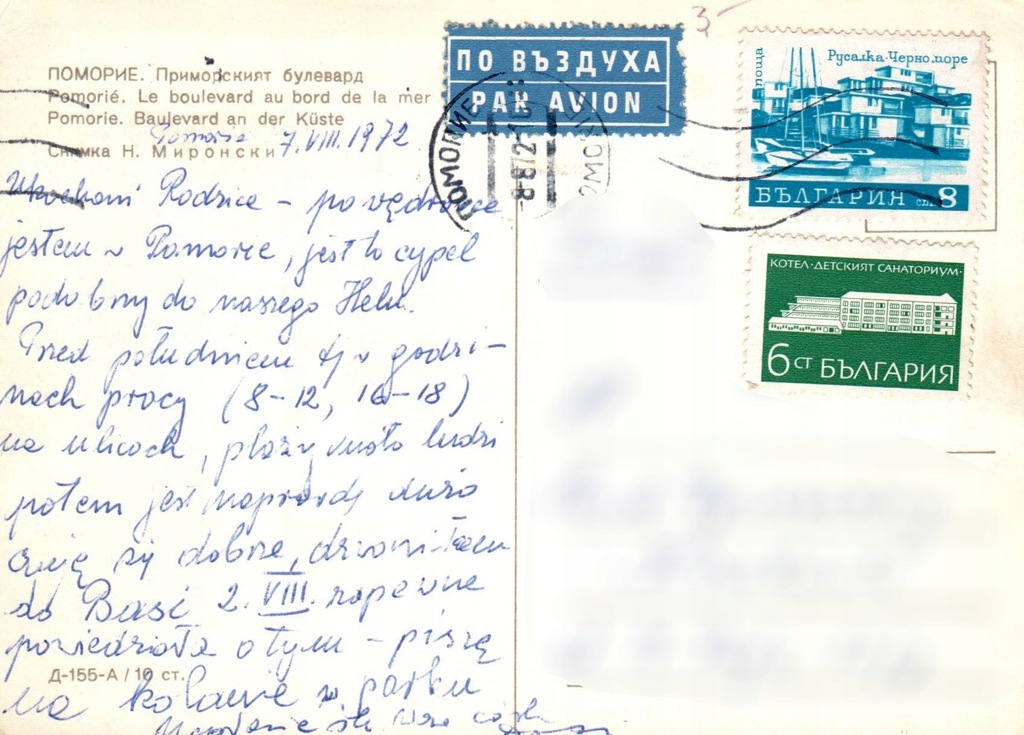 ПОМОРИЕ. Приморският булевард
Pomorié. Le boulevard au bord de la mer
Pomorie. Baulevard an der Küste
Снимка Н. Миронски
Pomorie 7.VIII.1972
Ukochani Rodzice – po wędrówce
jestem w Pomorie, jest to cypel
podobny do naszego Helu.
Przed południem tj w godzi-
nach pracy (8-12, 16-18)
na ulicach, plaży mało ludzi
potem jest naprawdę dużo
czuję się dobrze, dzwoniłam
do Basi 2.VIII. zapewne
powiedziała o tym – piszę
na kolanie w parku
Д-155-А / 10 ст.
ПО ВЪЗДУХА
PAR AVION
ПОМОРИЕ
-8.8.72
3-
Русалка·Черно море
поща
БЪЛГАРИЯ ст. 8
КОТЕЛ·ДЕТСКИЯТ САНАТОРИУМ·
6 СТ БЪЛГАРИЯ